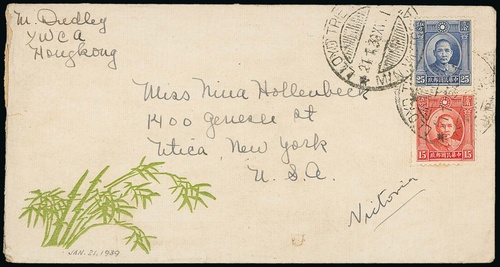 M. Dudley
YWCA
Hongkong
LLOYD TRIESTINO
21.1.39.XVII
25
25
15
15
Miss Nina Hollenbeck
1400 Genesee St
Utica, New York
U.S.A.
Victoria
JAN. 21, 1939